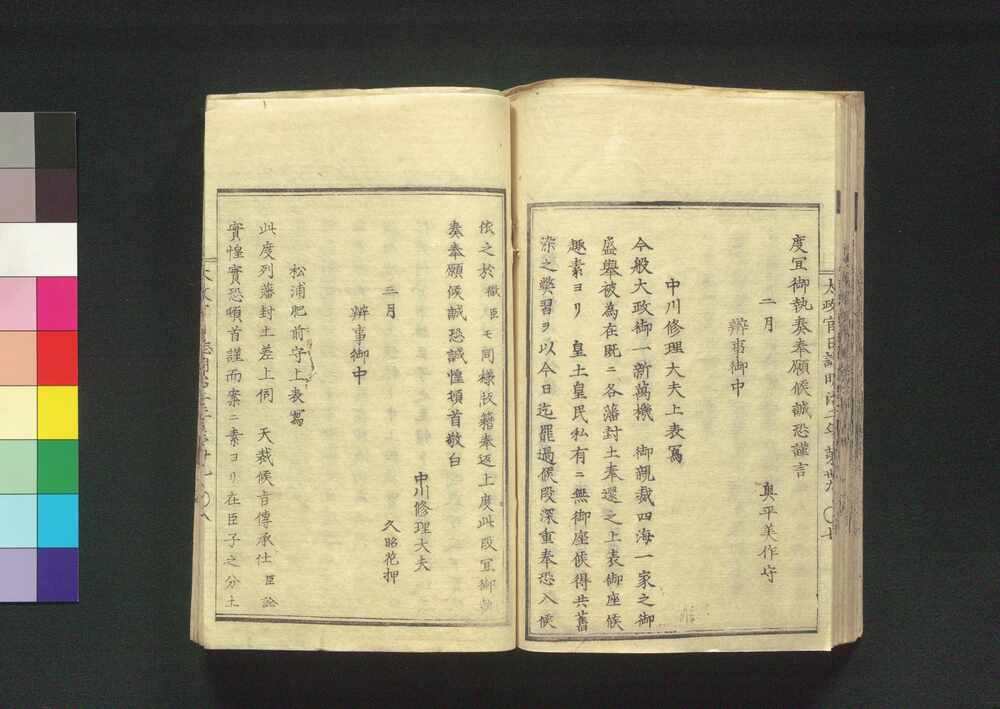 度宜御執奏奉願候誠恐謹言
二月　　奥平美作守
辨事御中
中川修理大夫上表寫
今般大政御一新萬機　御親裁四海一家之御
盛舉被為在既ニ各藩封土奉還之上表御座候
趣素ヨリ　皇土皇民私有ニ無御座候得共舊
染之弊習ヲ以今日迄罷過候段深重奉恐入候
依之於微臣モ同様版籍奉返上度此段宜御執
奏奉願候誠恐誠惶頓首敬白
中川修理大夫
二月　　久昭花押
辨事御中
松浦肥前守上表寫
此度列藩封土差上伺　天裁候旨傳承仕臣詮
實惶實恐頓首謹而案ニ素ヨリ在臣子之分土
太政官日誌明治二年